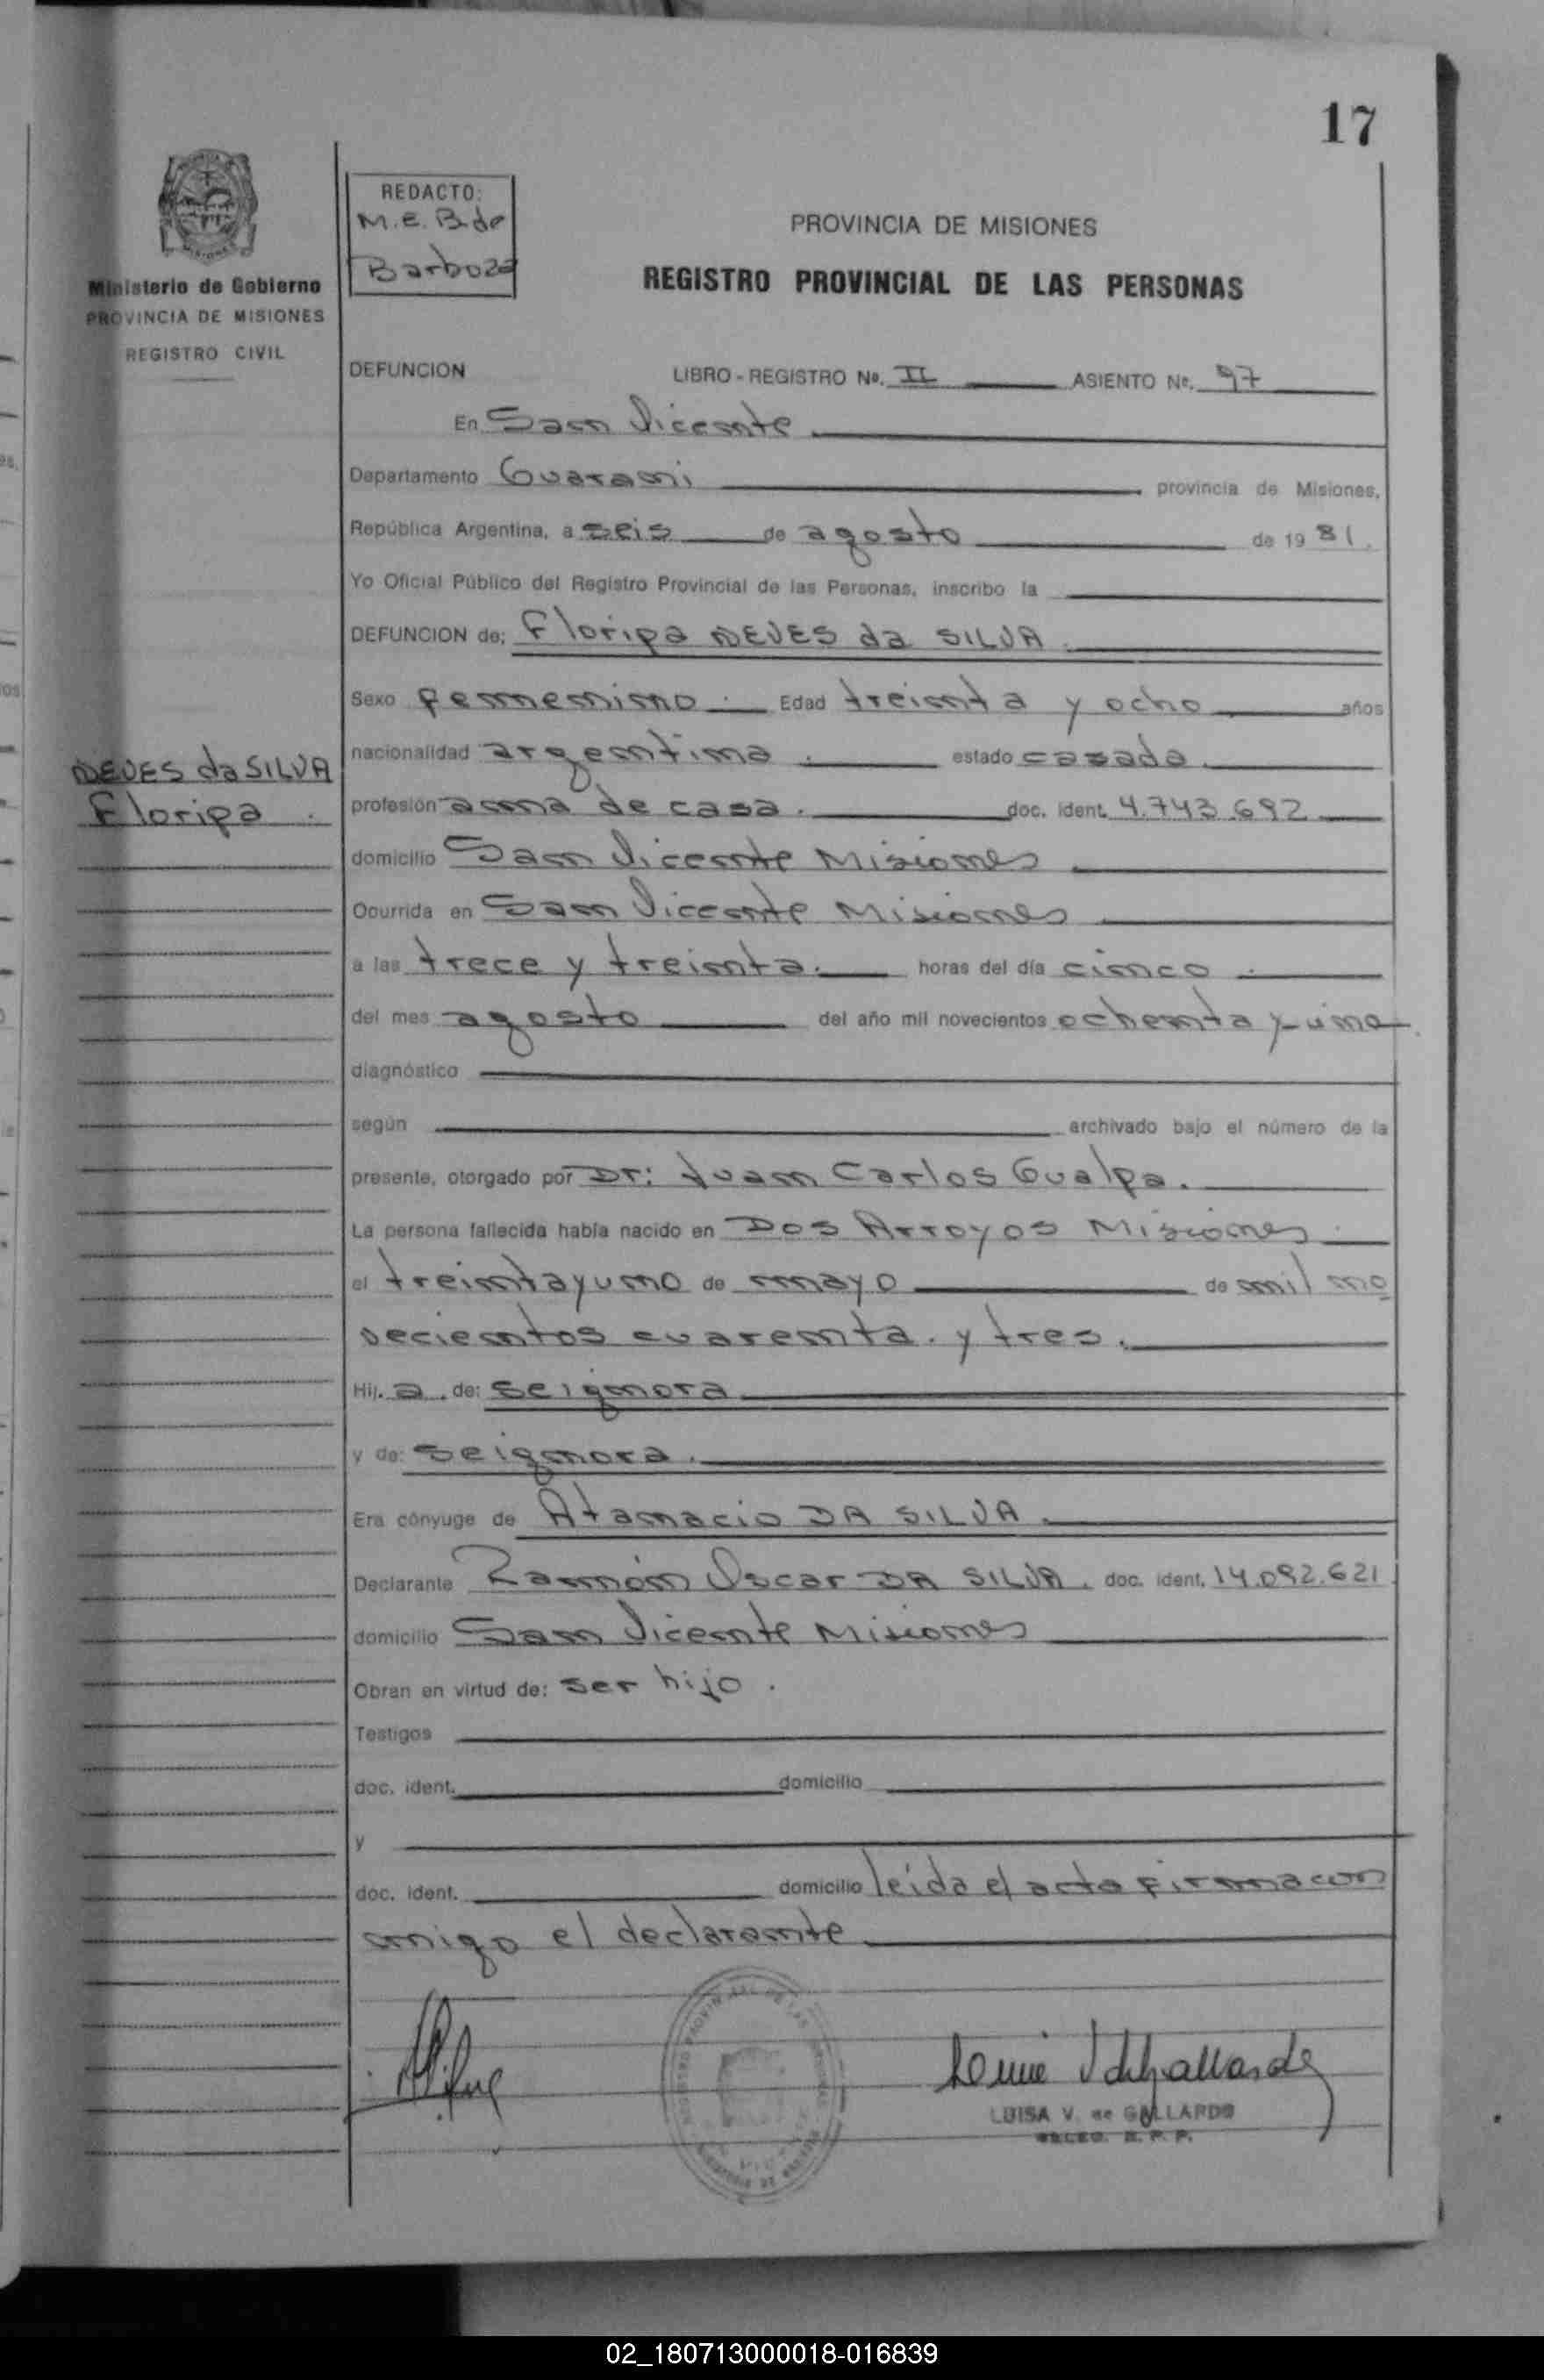 17
REDACTO:
M.E.B.de
Barboza
Ministerio de Gobierno
PROVINCIA DE MISIONES
REGISTRO CIVIL
PROVINCIA DE MISIONES
REGISTRO PROVINCIAL DE LAS PERSONAS
DEFUNCION LIBRO-REGISTRO No. II ASIENTO No. 97
En San Vicente
Departamento Guarani provincia de Misiones,
República Argentina, a seis de agosto de 19 81.
Yo Oficial Público del Registro Provincial de las Personas, inscribo la
DEFUNCION de: Floripa NEVES da SILVA.
Sexo femenino. Edad treinta y ocho años
NEVES da SILVA
Floripa.
nacionalidad argentina. estado casada.
profesión ama de casa. doc. ident. 4.743.692
domicilio San Vicente Misiones
Ocurrida en San Vicente Misiones
a las trece y treinta. horas del día cinco.
del mes agosto del año mil novecientos ochenta y uno
diagnóstico
según archivado bajo el número de la
presente, otorgado por Dr: Juan Carlos Gualpa.
La persona fallecida había nacido en Dos Arroyos Misiones.
el treintayuno de mayo de mil no
vecientos cuarenta. y tres.
Hij. a. de: seignora
y de: seignora.
Era cónyuge de Atanacio DA SILVA.
Declarante Ramón Oscar DA SILVA. doc. ident. 14.092.621
domicilio San Vicente Misiones
Obran en virtud de: ser hijo.
Testigos
doc. ident. domicilio
y
doc. ident. domicilio leida el acta firma con
migo el declarante
LUISA V. de GALLARDO
02_180713000018-016839